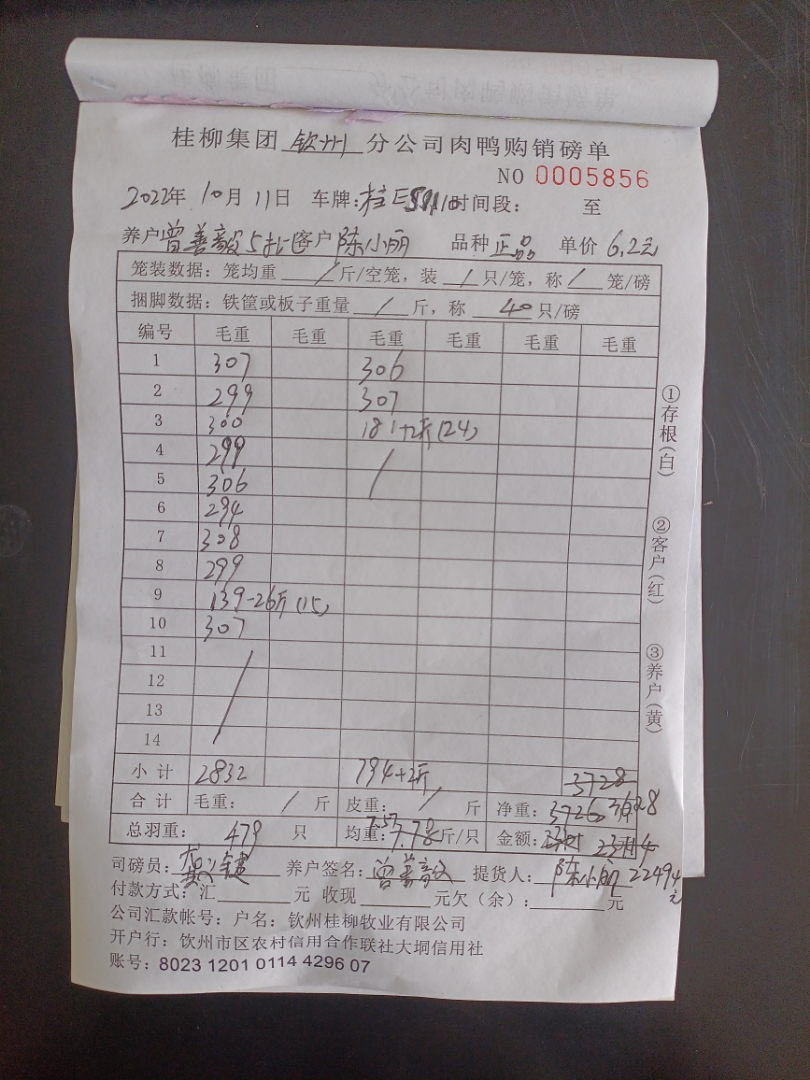 桂柳集团 钦州 分公司肉鸭购销磅单
NO 0005856
2022年 10月 11日 车牌: 时间段: 至
养户 曾善毅 5批 客户 陈小丽 品种 正品 单价 6.2元
笼装数据: 笼均重 / 斤/空笼, 装 / 只/笼, 称 / 笼/磅
捆脚数据: 铁筐或板子重量 / 斤, 称 40 只/磅
编号 毛重 毛重 毛重 毛重 毛重 毛重
1 307 306
2 299 307
3 300 181+2斤(24)
4 299 /
5 306
6 294
7 308
8 299
9 139-26斤(15)
10 307
11 /
12
13
14
小计 2832 794+2斤 3728
合计 毛重: / 斤 皮重: / 斤 净重: 3726 3628
总羽重: 479 只 均重: 7.57 7.78 斤/只 金额:
司磅员: 养户签名: 曾善毅 提货人: 陈小丽 22494元
付款方式: 汇 元 收现 元欠(余): 元
公司汇款帐号: 户名: 钦州桂柳牧业有限公司
开户行: 钦州市区农村信用合作联社大垌信用社
账号: 8023 1201 0114 4296 07
①存根(白)
②客户(红)
③养户(黄)